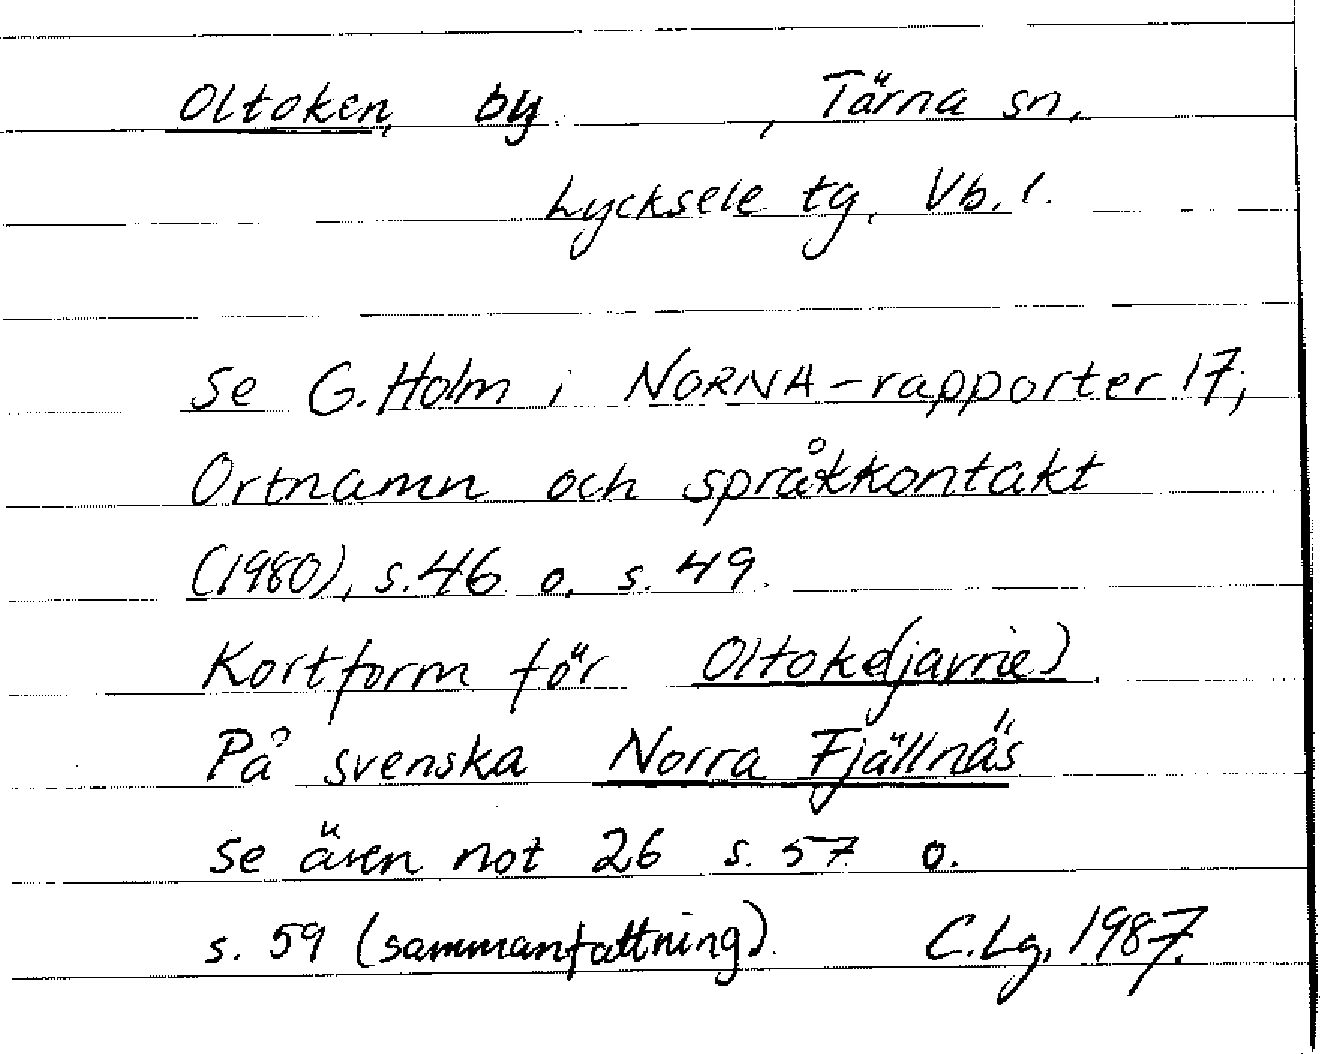 Oltoken, by , Tärna sn,
Lycksele tg, Vb. l.
Se G. Holm i NORNA-rapporter 17;
Ortnamn och språkkontakt
(1980), s. 46 o. s. 49.
Kortform för Oltoke(javrie).
På svenska Norra Fjällnäs
Se även not 26 s. 57 o.
s. 59 (sammanfattning). C.Lg. 1987.